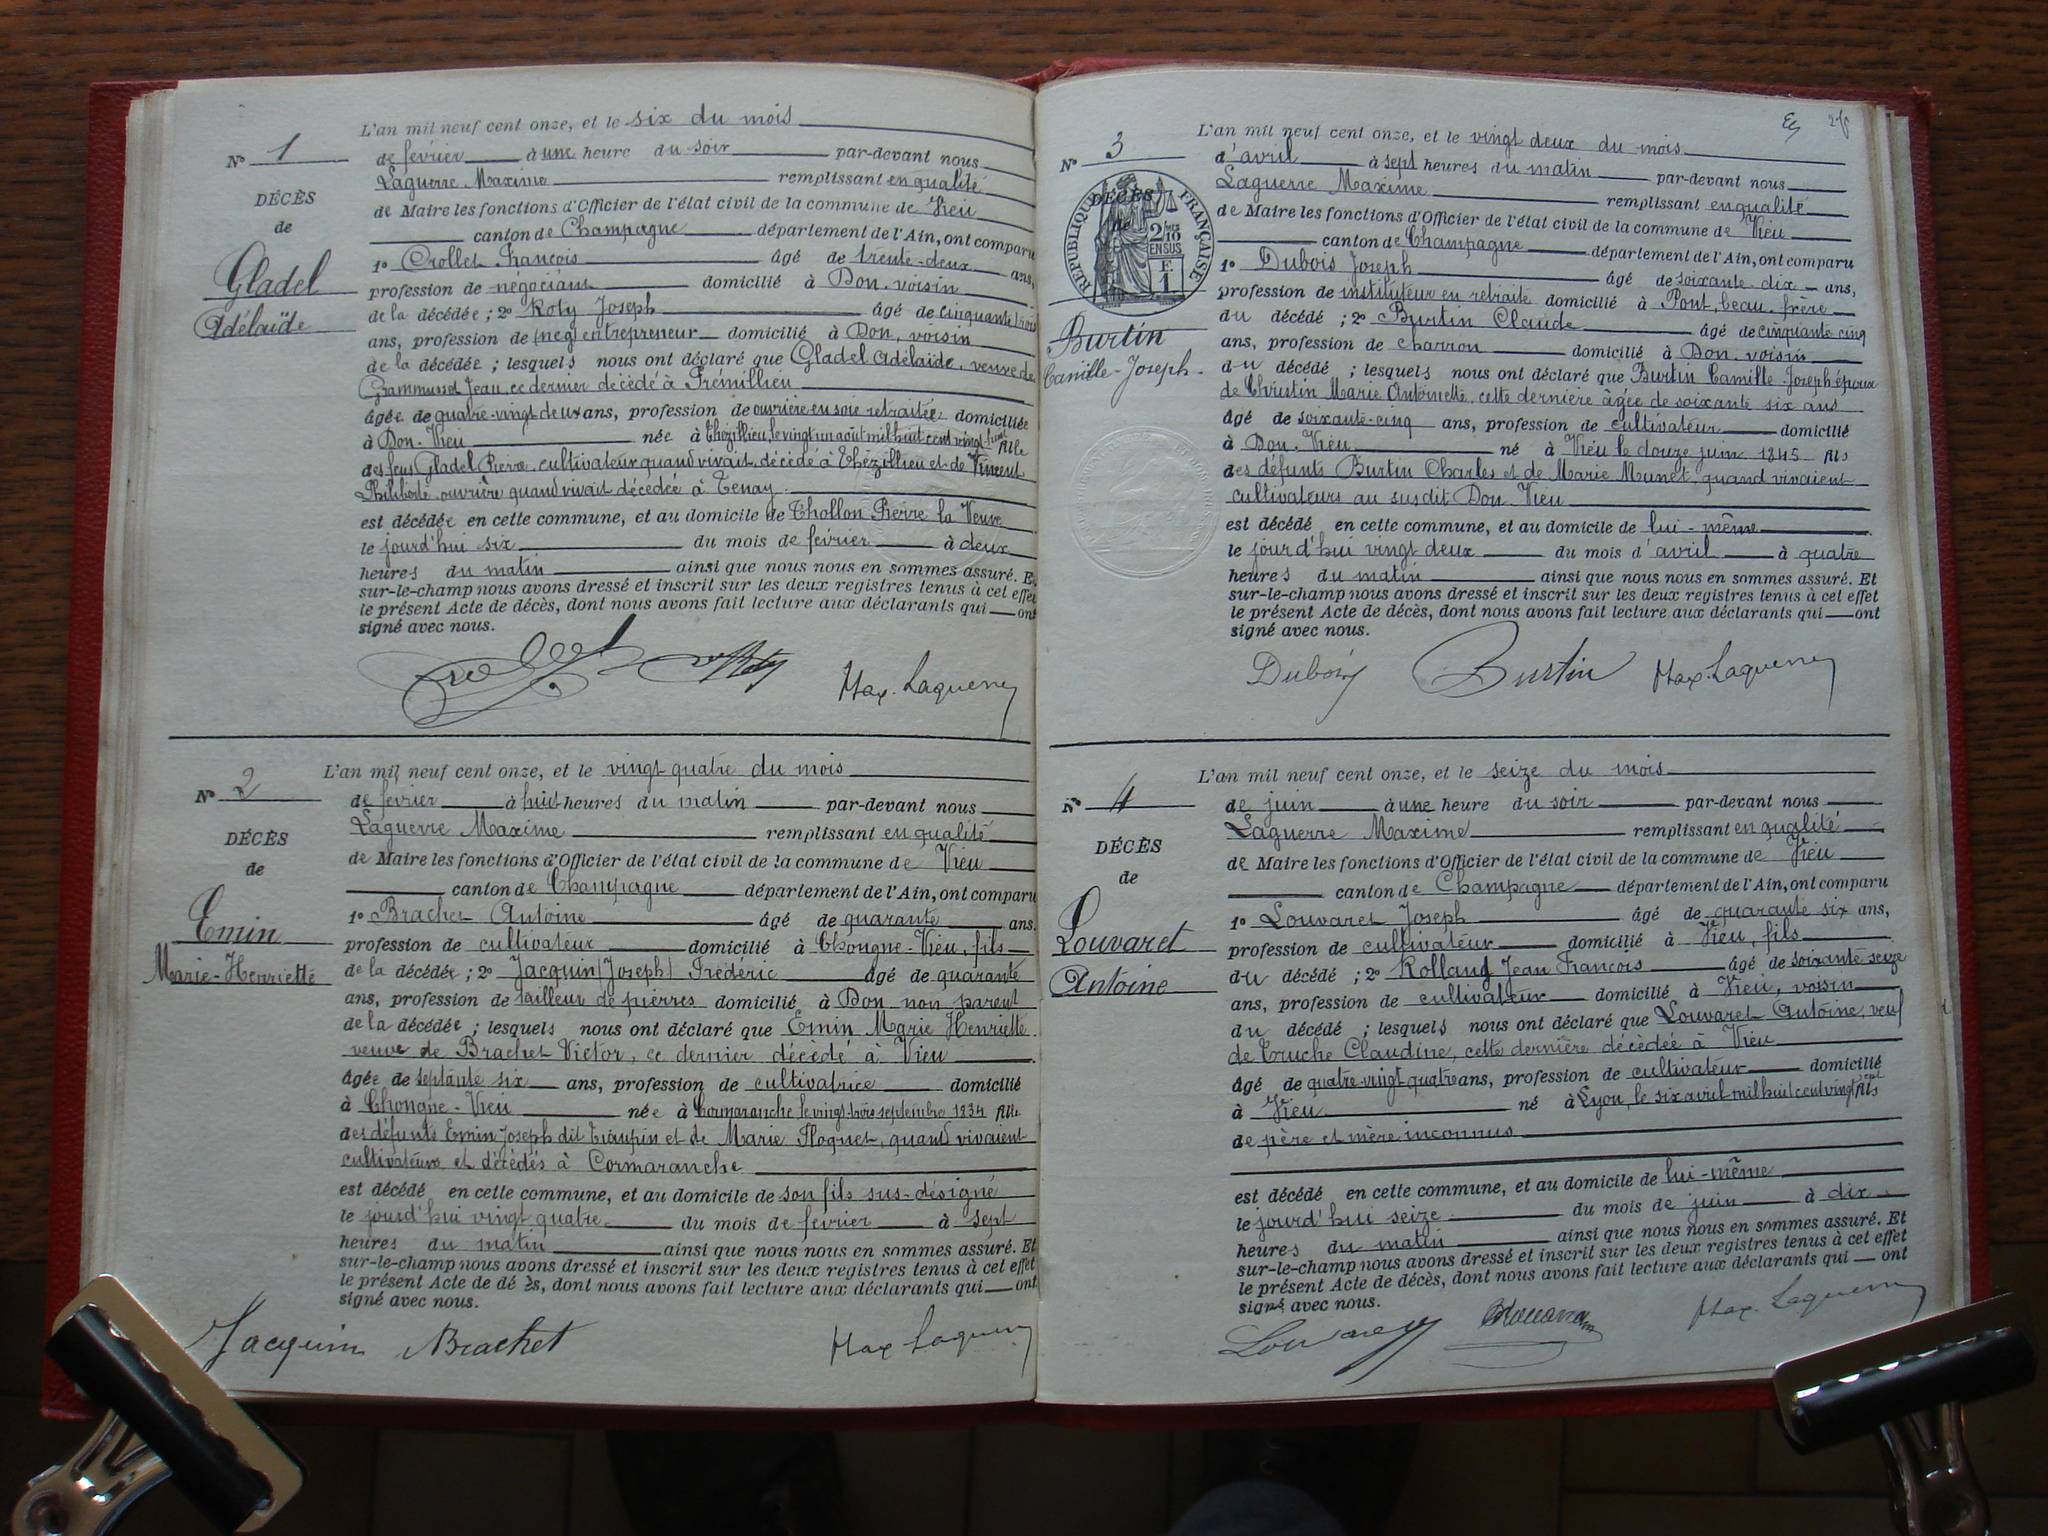 L'an mil neuf cent onze, et le six du mois
N° 1
de février à une heure du soir par-devant nous
Laguerre Maxime remplissant en qualité
DÉCÈS
de Maire les fonctions d'Officier de l'état civil de la commune de Vieu
de
canton de Champagne département de l'Ain, ont comparu
Gladel
Adélaïde
1° Crollet François âgé de trente-deux ans,
profession de négociant domicilié à Don, voisin
de la décédée ; 2° Roty Joseph âgé de cinquante trois
ans, profession de entrepreneur domicilié à Don, voisin
de la décédée ; lesquels nous ont déclaré que Gladel Adélaïde, veuve de
Grammusset Jean, ce dernier décédé à Prémillieu
âgée de quatre-vingt deux ans, profession de ouvrière en soie retraitée domiciliée
à Don-Vieu née à Thézillieu, le vingt un août mil huit cent vingt-huit fille
des feus Gladel Pierre, cultivateur quand vivait, décédé à Thézillieu et de Vincent
Philiberte ouvrière quand vivait décédée à Tenay
est décédée en cette commune, et au domicile de Thollon Pierre la Veuve
le jourd'hui six du mois de février à deux
heures du matin ainsi que nous nous en sommes assuré. Et
sur-le-champ nous avons dressé et inscrit sur les deux registres tenus à cet effet
le présent Acte de décès, dont nous avons fait lecture aux déclarants qui ont
signé avec nous.
Max. Laguerre
L'an mil neuf cent onze, et le vingt quatre du mois
N° 2
de février à huit heures du matin par-devant nous
Laguerre Maxime remplissant en qualité
DÉCÈS
de Maire les fonctions d'Officier de l'état civil de la commune de Vieu
de
canton de Champagne département de l'Ain, ont comparu
Emin
Marie-Henriette
1° Brachet Antoine âgé de quarante ans.
profession de cultivateur domicilié à Chongne-Vieu, fils
de la décédée ; 2° Jacquin (Joseph) Frédéric âgé de quarante
ans, profession de tailleur de pierres domicilié à Don non parent
de la décédée ; lesquels nous ont déclaré que Emin Marie Henriette
veuve de Brachet Victor, ce dernier décédé à Vieu
âgée de septante six ans, profession de cultivatrice domicilié
à Chongne-Vieu née à Cormaranche le vingt-trois septembre 1834 fille
des défunts Emin Joseph dit Traupin et de Marie Floquet, quand vivaient
cultivateurs et décédés à Cormaranche
est décédé en cette commune, et au domicile de son fils sus-désigné
le jourd'hui vingt quatre du mois de février à sept
heures du matin ainsi que nous nous en sommes assuré. Et
sur-le-champ nous avons dressé et inscrit sur les deux registres tenus à cet effet
le présent Acte de décès, dont nous avons fait lecture aux déclarants qui ont
signé avec nous.
Jacquin Brachet Max Laguerre
L'an mil neuf cent onze, et le vingt deux du mois
N° 3
d'avril à sept heures du matin par-devant nous
Laguerre Maxime remplissant en qualité
DÉCÈS
de
RÉPUBLIQUE FRANÇAISE
2/10 EN SUS
F. 1
de Maire les fonctions d'Officier de l'état civil de la commune de Vieu
canton de Champagne département de l'Ain, ont comparu
Burtin
Camille-Joseph.
1° Dubois Joseph âgé de soixante-dix ans,
profession de instituteur en retraite domicilié à Pont, beau-frère
du décédé ; 2° Burtin Claude âgé de cinquante cinq
ans, profession de charron domicilié à Don, voisin
du décédé ; lesquels nous ont déclaré que Burtin Camille-Joseph époux
de Christin Marie Antoinette, cette dernière âgée de soixante six ans
âgé de soixante-cinq ans, profession de cultivateur domicilié
à Don-Vieu né à Vieu le douze juin 1845 fils
des défunts Burtin Charles et de Marie Munet, quand vivaient
cultivateurs au susdit Don-Vieu
est décédé en cette commune, et au domicile de lui-même
le jourd'hui vingt deux du mois d'avril à quatre
heures du matin ainsi que nous nous en sommes assuré. Et
sur-le-champ nous avons dressé et inscrit sur les deux registres tenus à cet effet
le présent Acte de décès, dont nous avons fait lecture aux déclarants qui ont
signé avec nous.
Dubois Burtin Max. Laguerre
L'an mil neuf cent onze, et le seize du mois
N° 4
de juin à une heure du soir par-devant nous
Laguerre Maxime remplissant en qualité
DÉCÈS
de Maire les fonctions d'Officier de l'état civil de la commune de Vieu
de
canton de Champagne département de l'Ain, ont comparu
Louvaret
Antoine
1° Louvaret Joseph âgé de quarante six ans,
profession de cultivateur domicilié à Vieu, fils
du décédé ; 2° Rolland Jean François âgé de soixante seize
ans, profession de cultivateur domicilié à Vieu, voisin
du décédé ; lesquels nous ont déclaré que Louvaret Antoine, veuf
de Truche Claudine, cette dernière décédée à Vieu
âgé de quatre-vingt quatre ans, profession de cultivateur domicilié
à Vieu né à Lyon, le six avril mil huit cent vingt sept fils
de père et mère inconnus
est décédé en cette commune, et au domicile de lui-même
le jourd'hui seize du mois de juin à dix
heures du matin ainsi que nous nous en sommes assuré. Et
sur-le-champ nous avons dressé et inscrit sur les deux registres tenus à cet effet
le présent Acte de décès, dont nous avons fait lecture aux déclarants qui ont
signé avec nous.
Louvaret Max. Laguerre